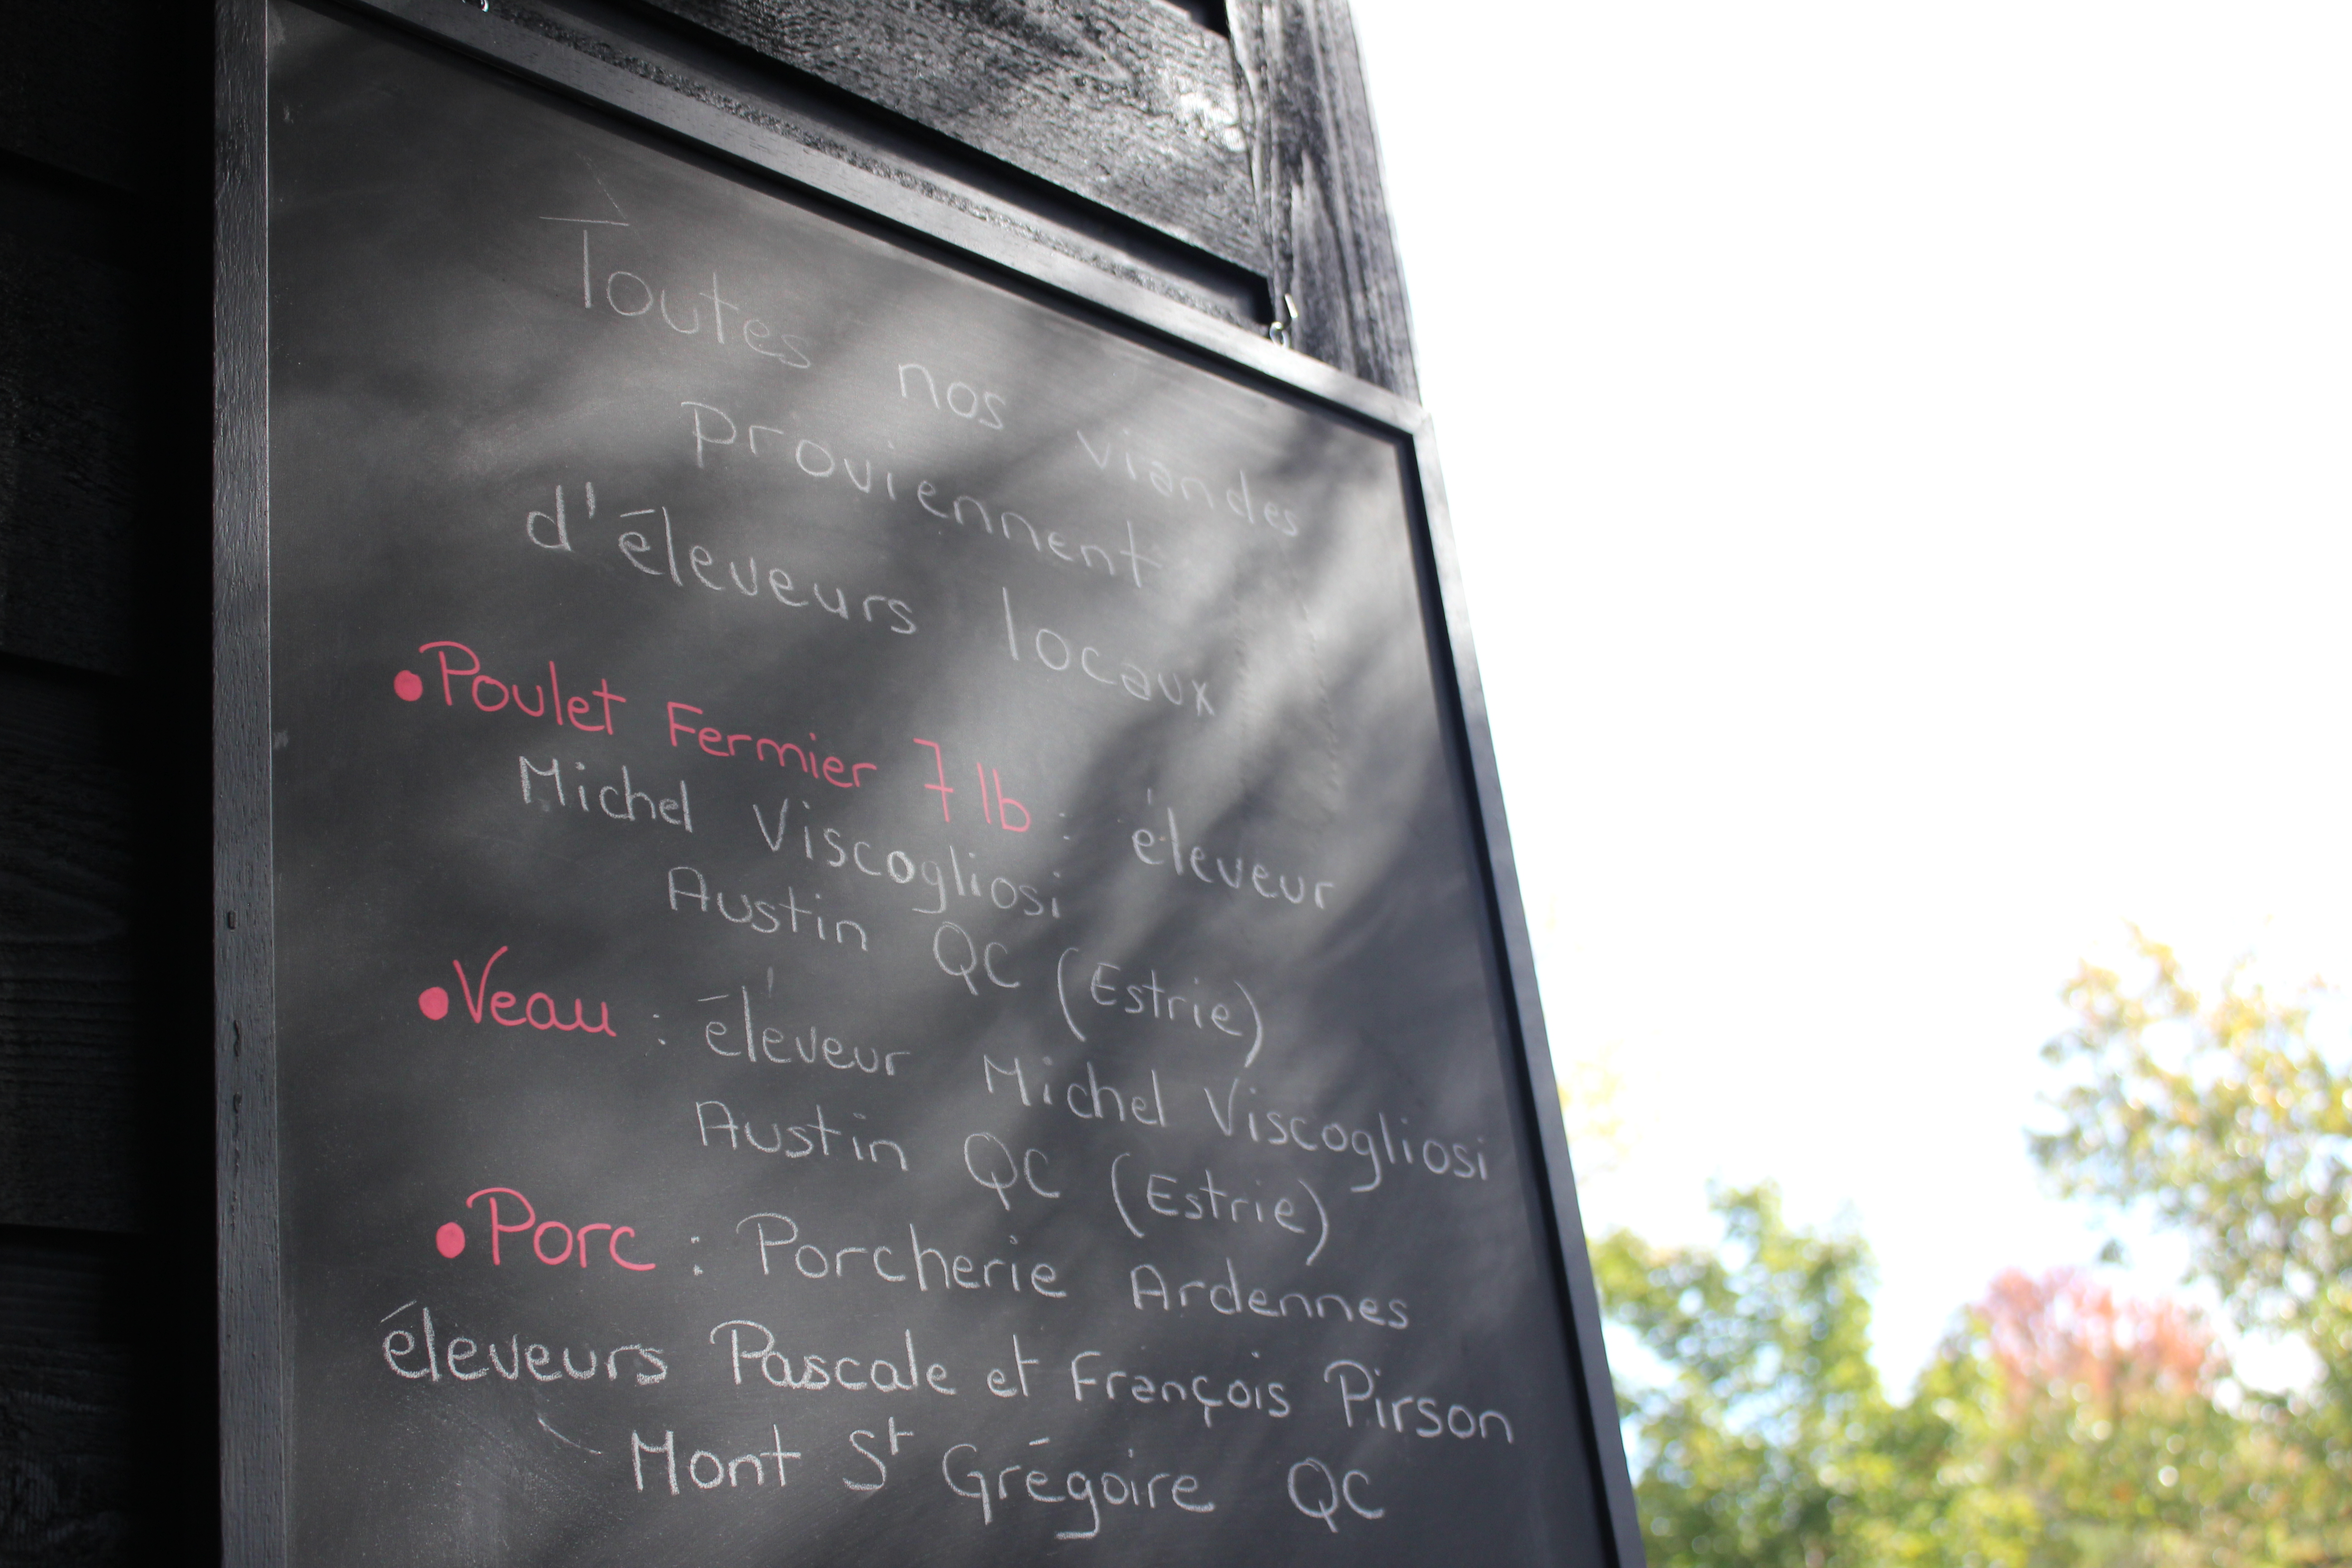 Toutes nos viandes
proviennent
d'éleveurs locaux
• Poulet Fermier 7 lb : éleveur
Michel Viscogliosi
Austin QC (Estrie)
• Veau : éleveur Michel Viscogliosi
Austin QC (Estrie)
• Porc : Porcherie Ardennes
éleveurs Pascale et François Pirson
Mont St Grégoire QC